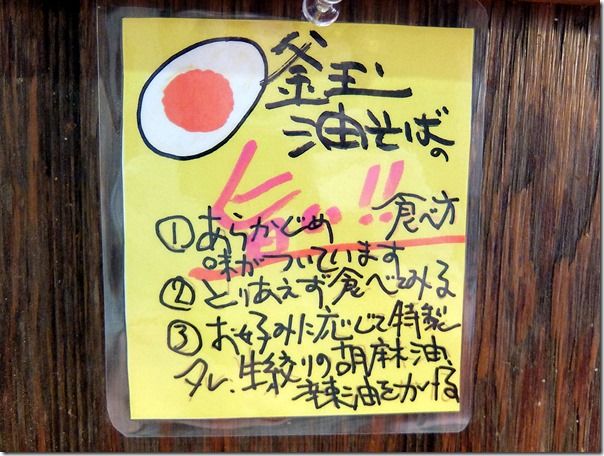 釜玉
油そばの
旨い!!
食べ方
①あらかじめ
味がついています
②とりあえず、食べてみる
③お好みに応じて特製
タレ、生絞りの胡麻油、
辣油をかける